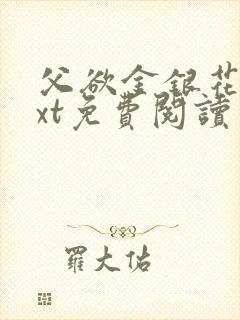 父欲金銀花
xt免費閱讀
羅大佑